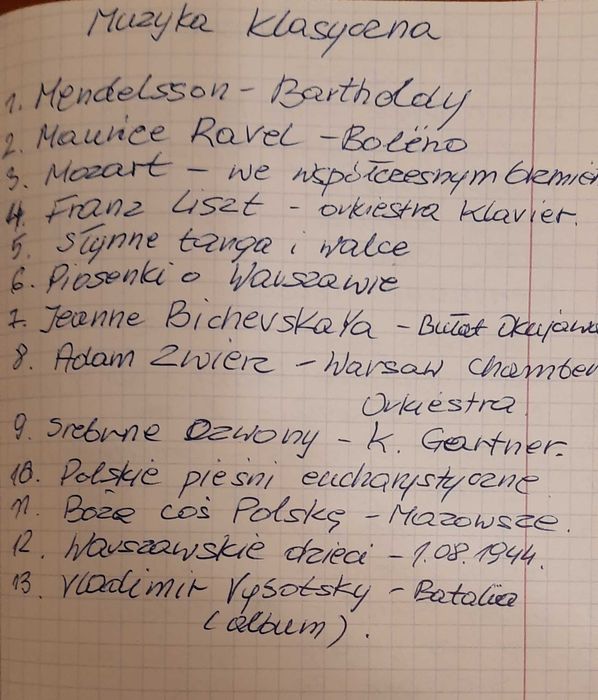 Muzyka Klasyczna
1. Mendelsson - Bartholdy
2. Maurice Ravel - Bolëro
3. Mozart - we współczesnym brzmien
4. Franz Liszt - orkiestra Klavier.
5. Słynne tanga i walce
6. Piosenki o Warszawie
7. Jeanne Bichevskaya - Bułat Okujawa
8. Adam Zwierz - Warsaw Chamber
Orkiestra.
9. Srebrne Dzwony - K. Gartner.
10. Polskie pieśni eucharystyczne
11. Boże coś Polskę - Mazowsze.
12. Warszawskie dzieci - 1.08.1944.
13. Vladimir Vysotsky -
(album).